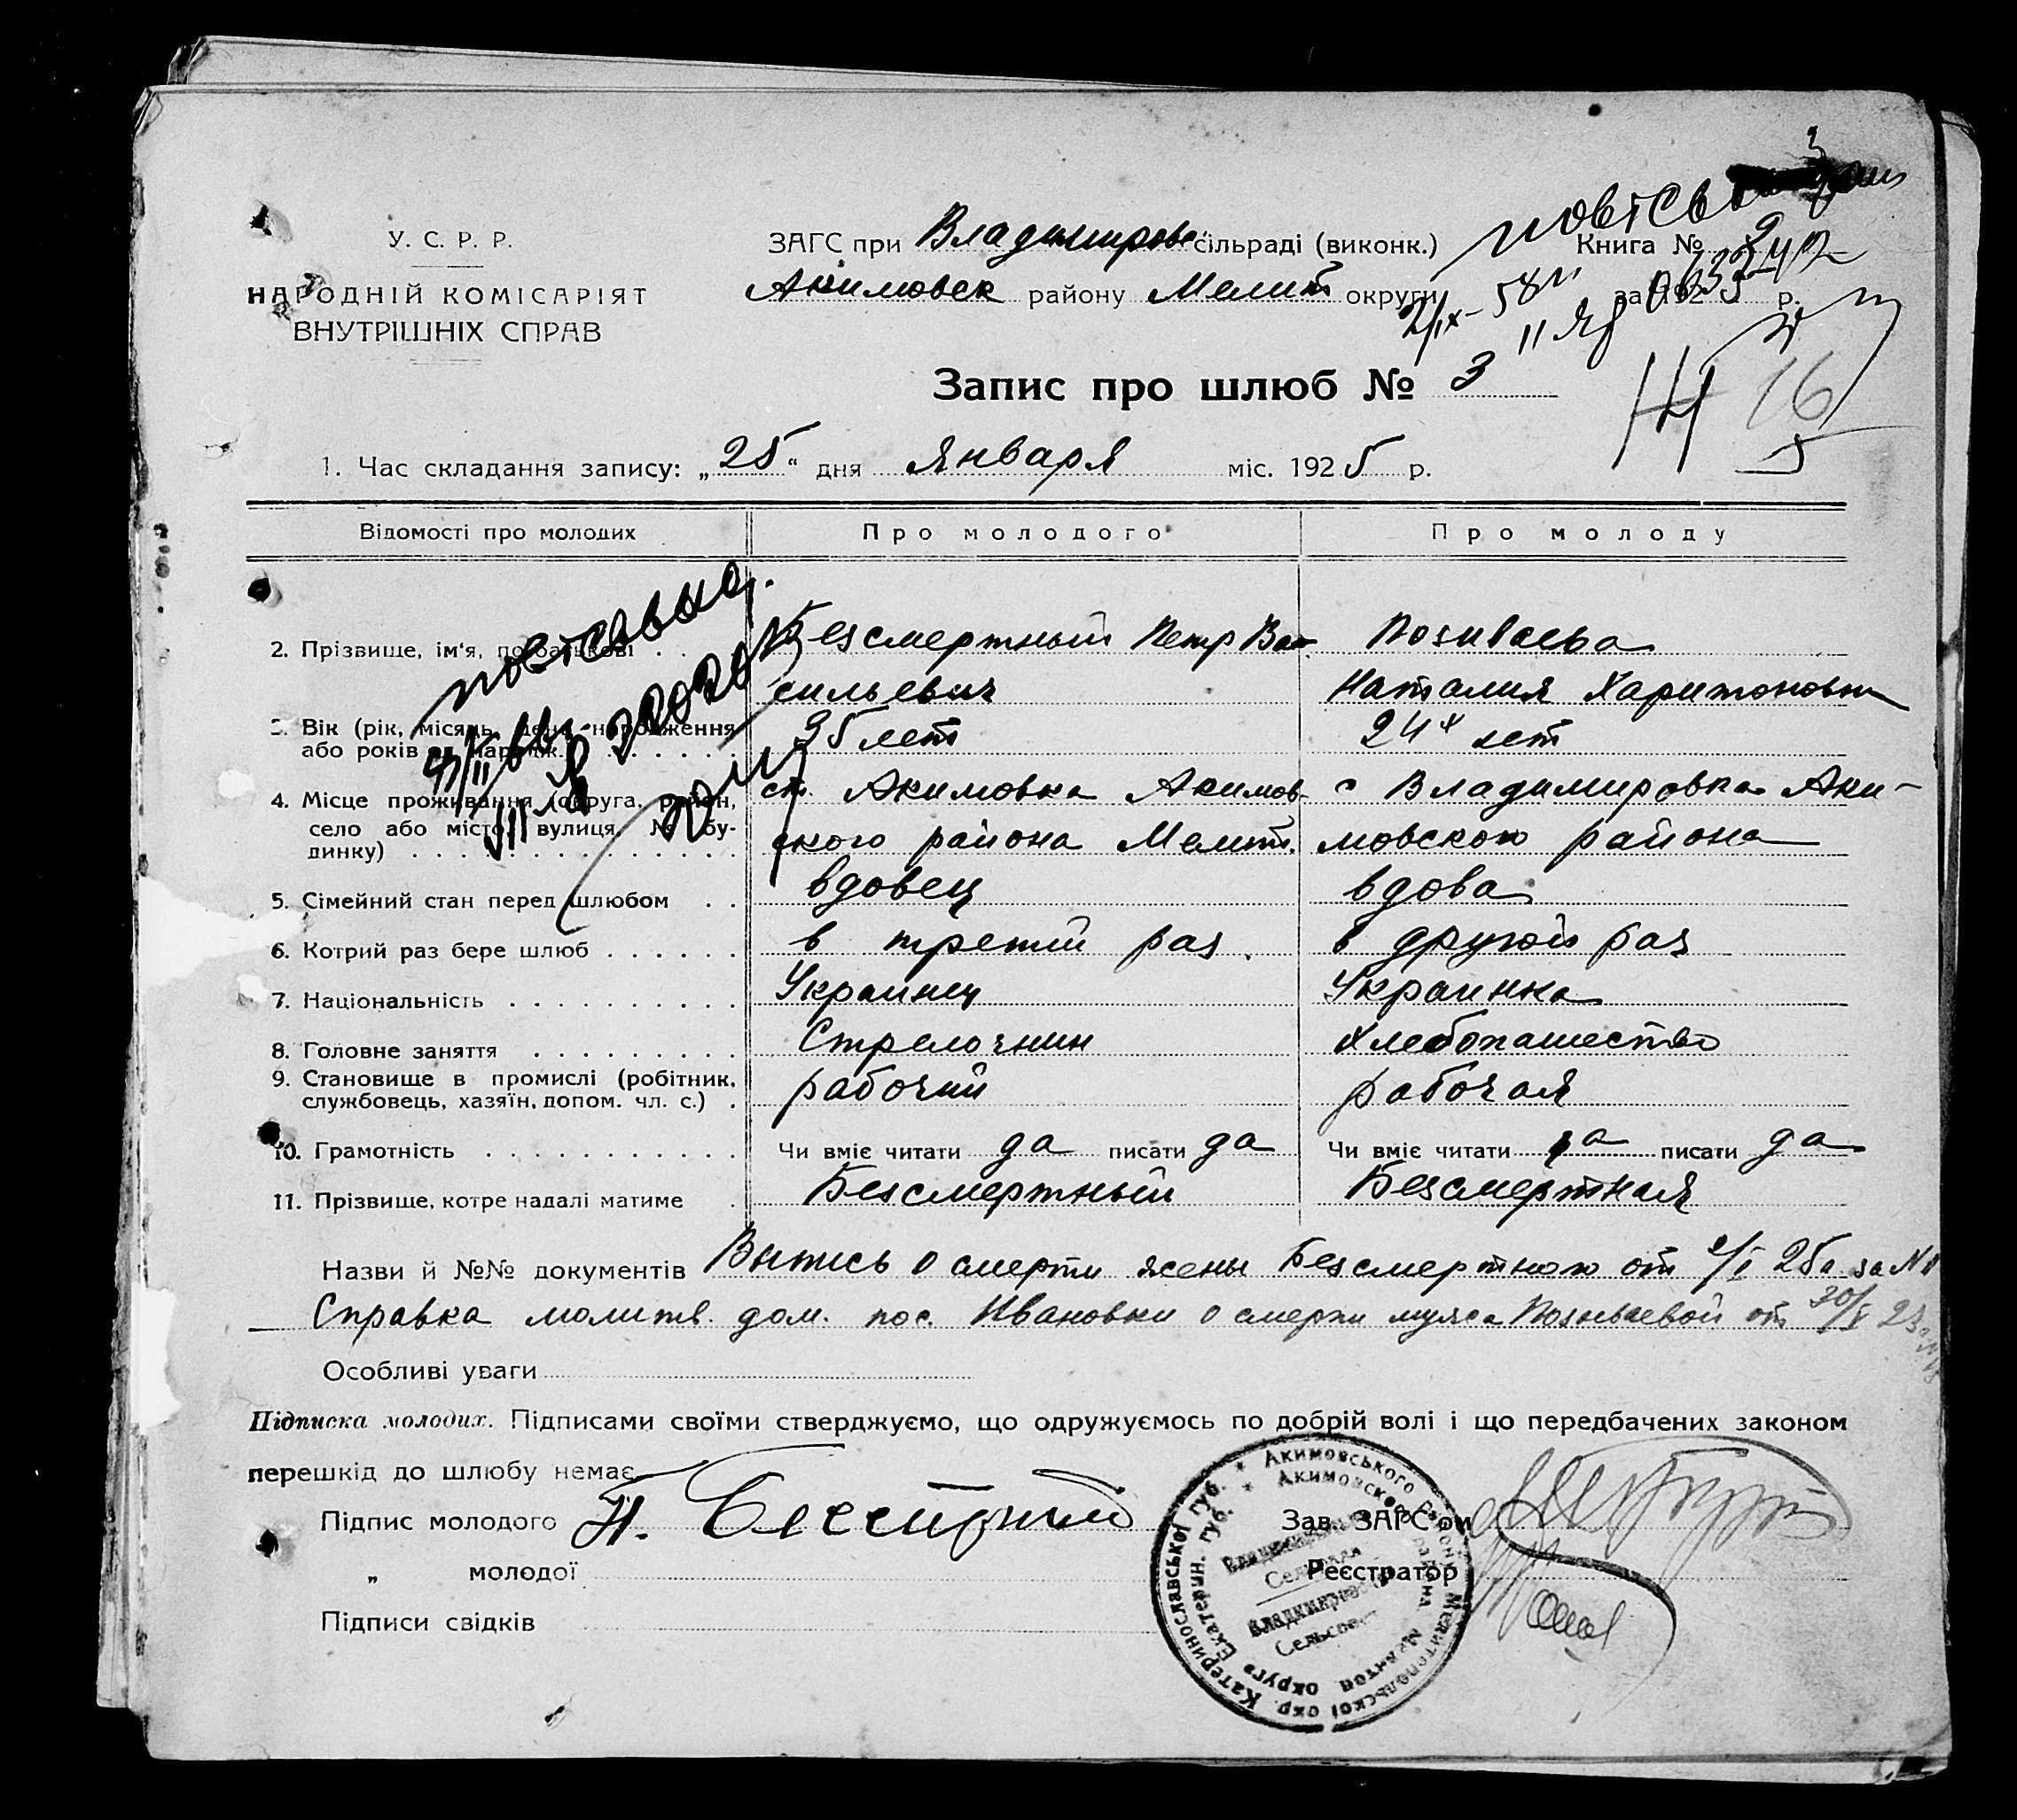 У. С. Р. Р.
НАРОДНІЙ КОМІСАРІЯТ
ВНУТРІШНІХ СПРАВ
ЗАГС при Владимиров сільраді (виконк.) Книга № 2
Акимовск району Мелит округи за 1925 р.
Запис про шлюб № 3
1. Час складання запису: „25“ дня Января міс. 1925 р.
Відомості про молодих Про молодого Про молоду
2. Прізвище, ім'я, по батькові . . Безсмертный Петр Ва-
сильевич
Позиваева
Наталия Харитоновна
3. Вік (рік, місяць, день народження
або років 35 лет 24х лет
4. Місце проживання (округа, район,
село або місто, вулиця, № бу-
динку) ст. Акимовка Акимов-
ского района Мелит.
с Владимировка Аки-
мовского района
5. Сімейний стан перед шлюбом . . вдовец вдова
6. Котрий раз бере шлюб . . . . . . в третий раз. в другой раз
7. Національність . . . . . . . . . . Украинец Украинка
8. Головне заняття . . . . . . . . . Стрелочник Хлебопашество
9. Становище в промислі (робітник,
службовець, хазяїн, допом. чл. с.) . рабочий рабочая
10. Грамотність . . . . . . . . . . . Чи вміє читати да писати да Чи вміє читати да писати да
11. Прізвище, котре надалі матиме . Безсмертный Безсмертная
Назви й №№ документів Выпись о смерти жены Безсмертного от 25г. за №
Справка молитв. дом. пос. Ивановки о смерти мужа Позываевой от 30/X 23
Особливі уваги
Підписка молодих. Підписами своїми стверджуємо, що одружуємось по добрій волі і що передбачених законом
перешкід до шлюбу немає.
Підпис молодого П. Безсмертный Зав. ЗАГС'ом
„ молодої Реєстратор
Підписи свідків
Катеринославської губ. * Акимовського району Мелитопольскої окр.
Екатерин. губ. * Акимовского района Мелитоп округа
Сельсовет